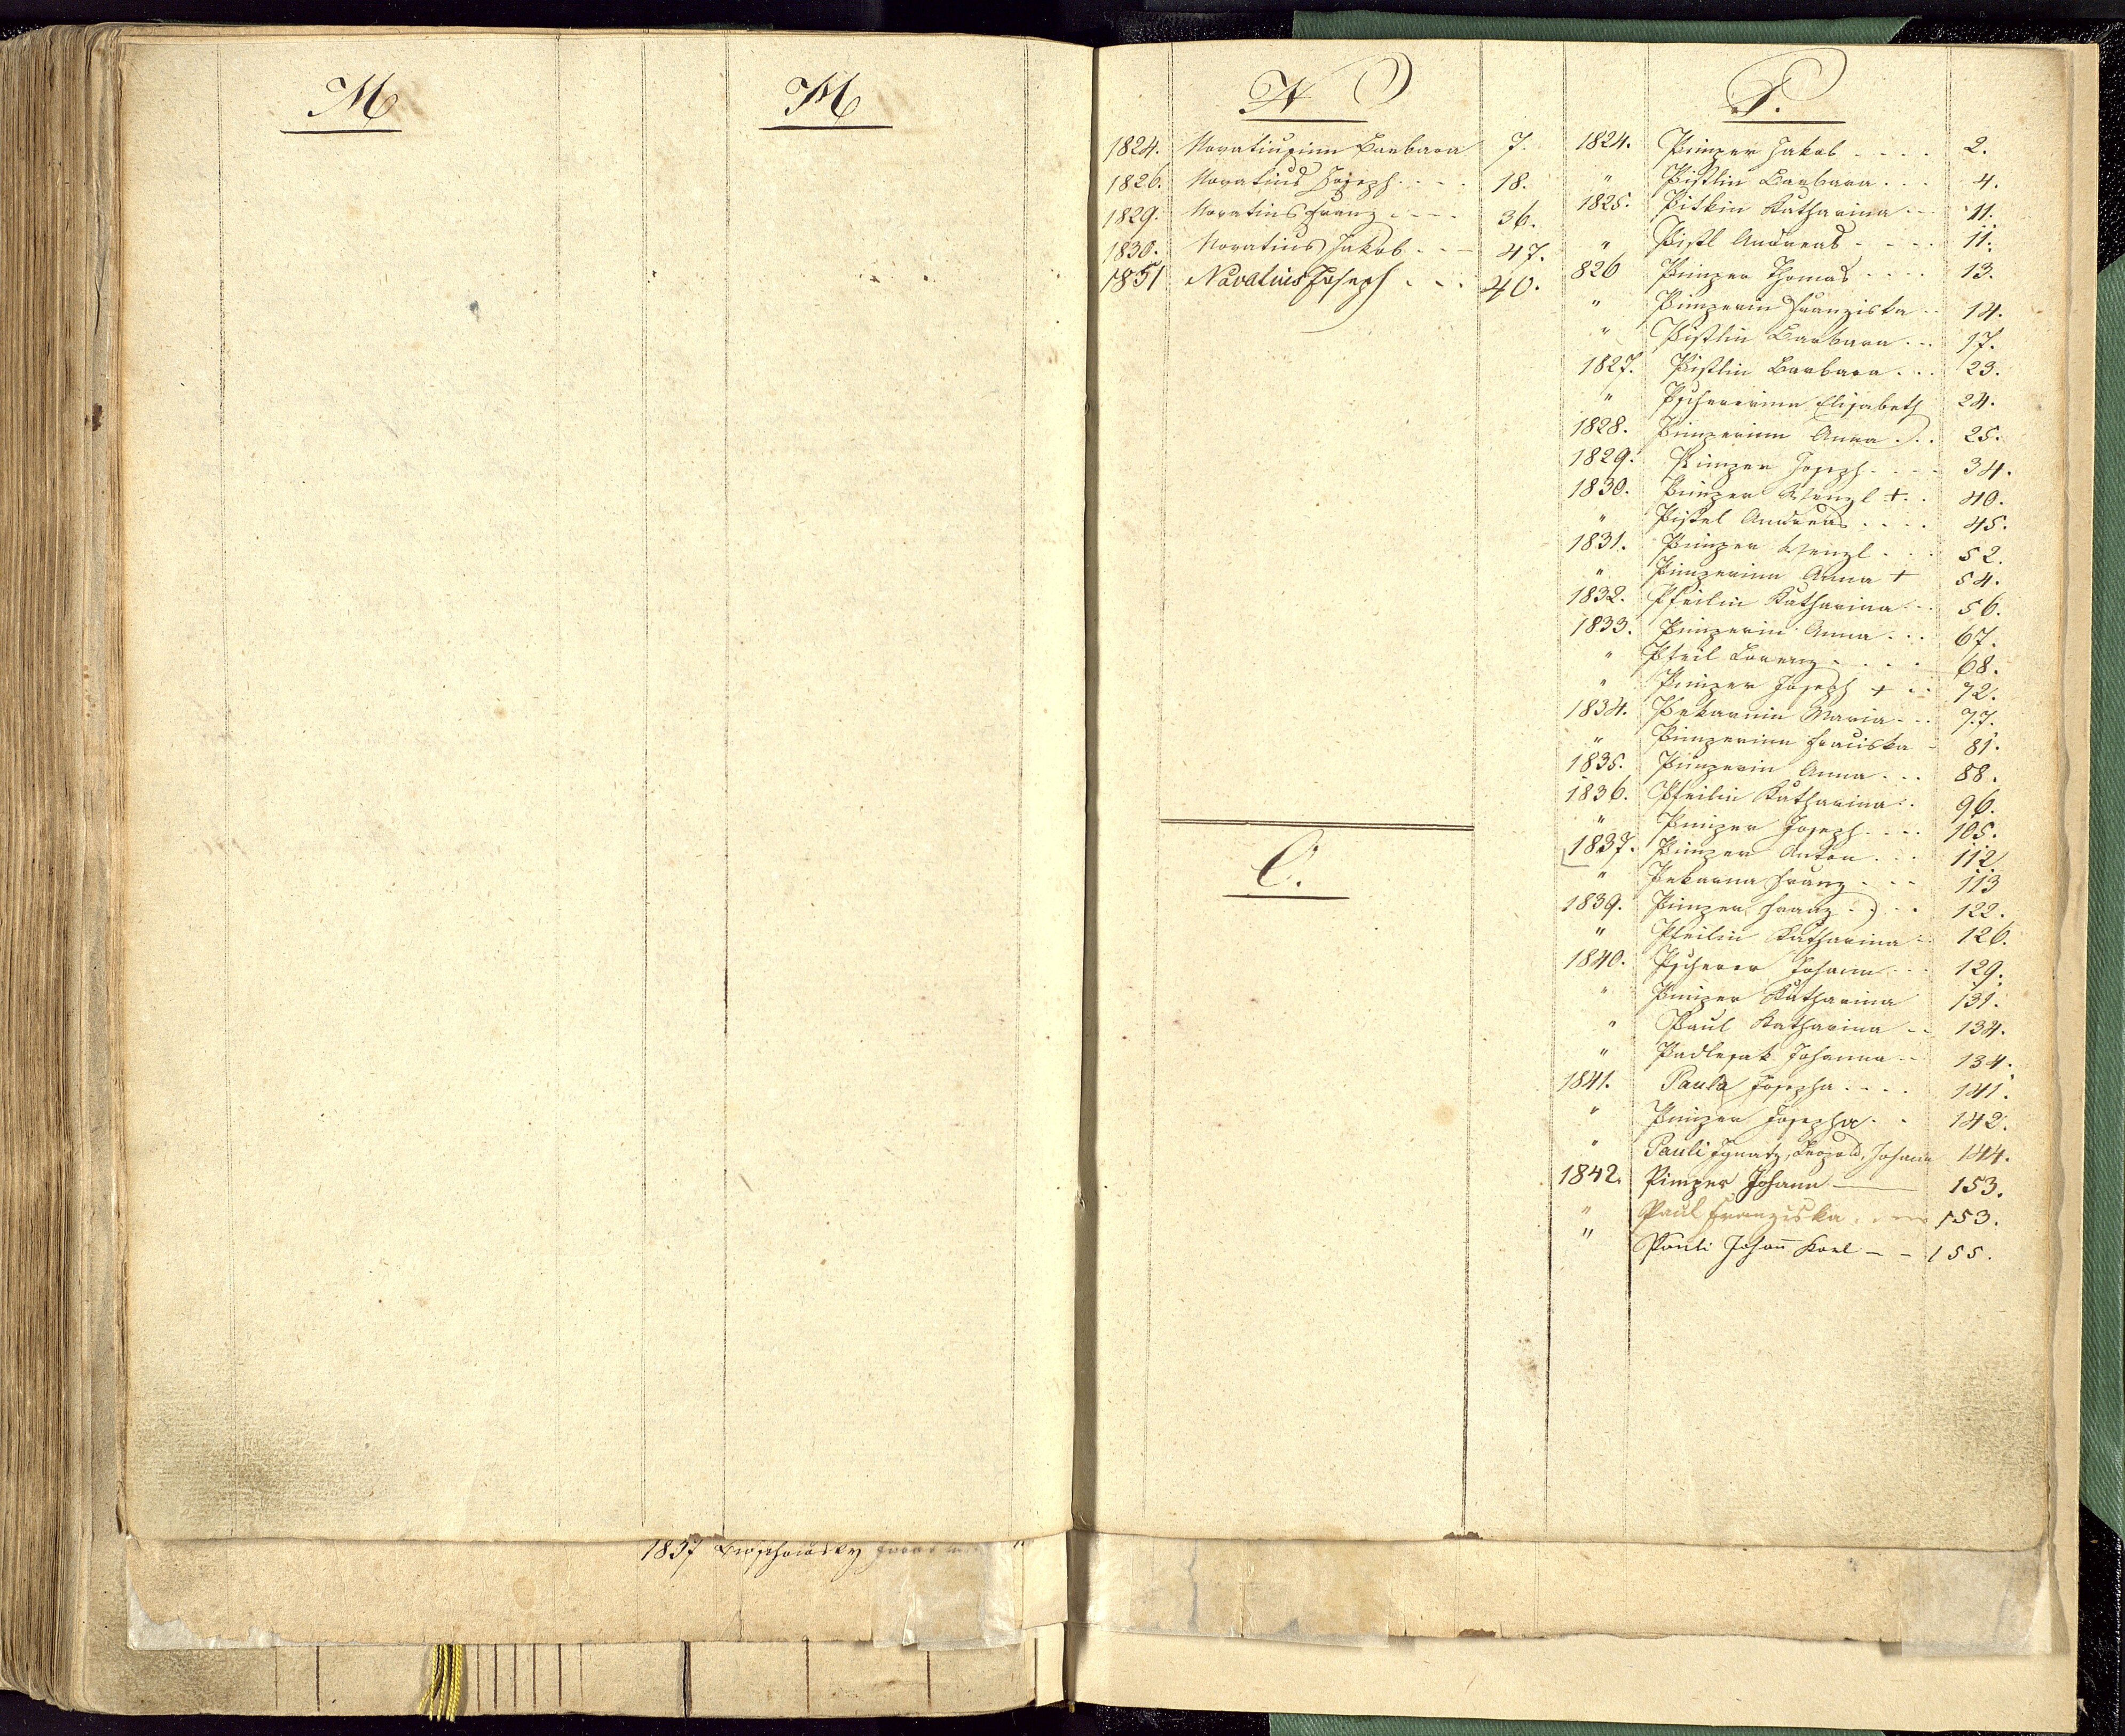 M
M
1837
N
1824. Novatiusinn Barbara 7.
1826. Novatius Joseph 18.
1829. Novatius Franz 36.
1830. Novatius Jakob 47.
1851 Novatius Joseph 40.
O.
P.
1824. Pimper Jakob 2.
" Pistlin Barbara 4.
1825. Pitkin Katharina 11.
" Pistl Andreas 11.
826 Pimper Thomas 13.
" Pimperin Franziska 14.
" Pistlin Barbara 17.
1827. Pistlin Barbara 23.
" Pschererinn Elisabeth 24.
1828. Pimperinn Anna 25.
1829. Pimper Joseph 34.
1830. Pimper Wenzl + 40.
" Pistel Andreas 45.
1831. Pimper Wenzl 52.
" Pimperinn Anna + 54.
1832. Pfeilin Katharina 56.
1833. Pimperin Anna 67.
" Pfeil Lorenz 68.
" Pimper Joseph + 72.
1834. Pekarnin Maria 77.
" Pimperinn Franciska 81.
1835. Pimperin Anna 88.
1836. Pfeilin Katharina 96.
" Pimper Joseph 105.
1837. Pimper Anton 112.
" Pekarna Franz 113
1839. Pimper Franz 122.
" Pfeilin Katharina 126.
1840. Pscherer Johann 129.
" Pimper Katharina 131.
" Paul Katharina 134.
" Padlesak Johanna 134.
1841. Paula Josepha 141.
" Pimper Josepha 142.
" Pauli Ignatz, Leopold, Johann 144.
1842. Pimper Johann 153.
" Paul Franziska 153.
" Pauli Johann Karl 155.